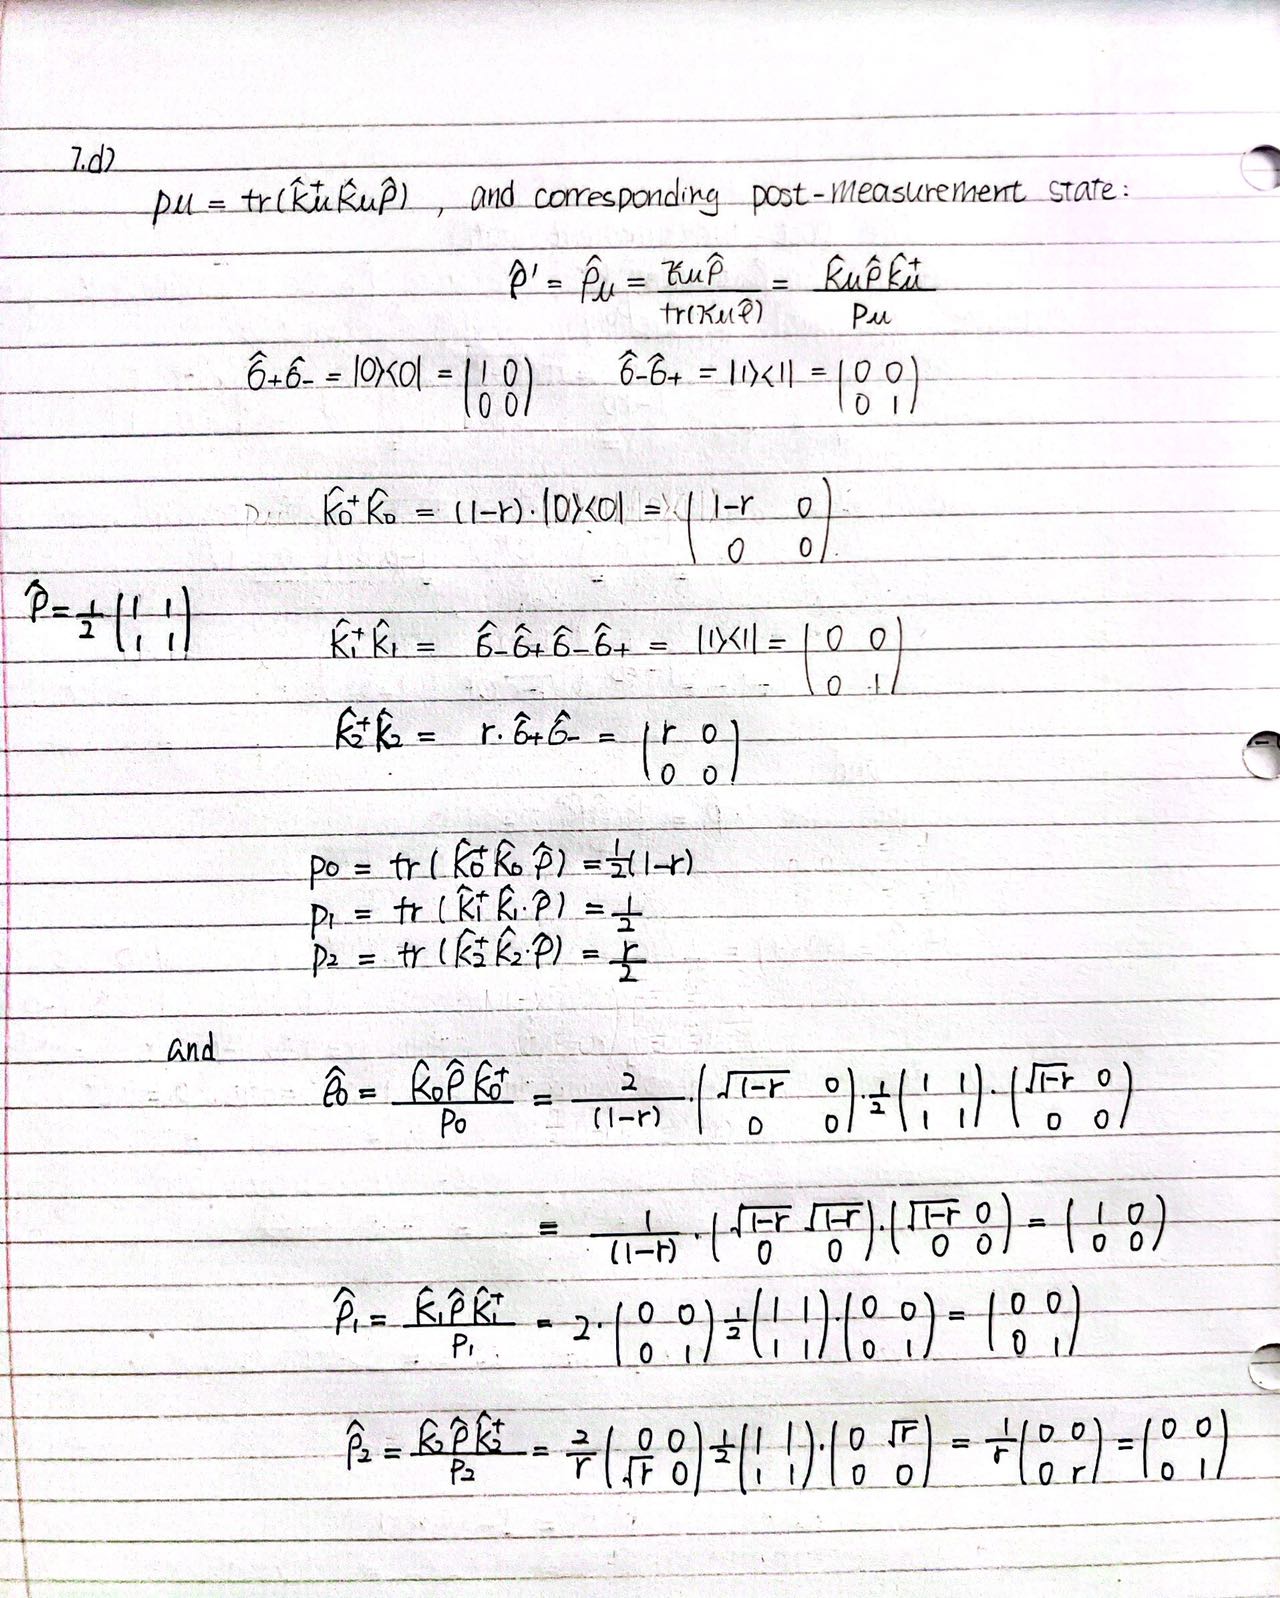 7.d)
pμ = tr(K̂μ⁺K̂μρ̂) , and corresponding post-measurement state:
ρ̂' = ρ̂μ = 𝒦μρ̂ / tr(𝒦μρ̂) = K̂μρ̂K̂μ⁺ / pμ
σ̂+σ̂- = |0><0| = (1 0; 0 0)   σ̂-σ̂+ = |1><1| = (0 0; 0 1)
K̂0⁺K̂0 = (1-r)·|0><0| = (1-r 0; 0 0)
ρ̂ = 1/2 (1 1; 1 1)
K̂1⁺K̂1 = σ̂-σ̂+σ̂-σ̂+ = |1><1| = (0 0; 0 1)
K̂2⁺K̂2 = r·σ̂+σ̂- = (r 0; 0 0)
p0 = tr(K̂0⁺K̂0 ρ̂) = 1/2(1-r)
p1 = tr(K̂1⁺K̂1·ρ̂) = 1/2
p2 = tr(K̂2⁺K̂2·ρ̂) = r/2
and
ρ̂0 = K̂0ρ̂K̂0⁺ / p0 = 2/(1-r)·(√1-r 0; 0 0)·1/2(1 1; 1 1)·(√1-r 0; 0 0)
= 1/(1-r)·(√1-r √1-r; 0 0)·(√1-r 0; 0 0) = (1 0; 0 0)
ρ̂1 = K̂1ρ̂K̂1⁺ / p1 = 2·(0 0; 0 1)1/2(1 1; 1 1)·(0 0; 0 1) = (0 0; 0 1)
ρ̂2 = K̂2ρ̂K̂2⁺ / p2 = 2/r(0 0; √r 0)1/2(1 1; 1 1)·(0 √r; 0 0) = 1/r(0 0; 0 r) = (0 0; 0 1)